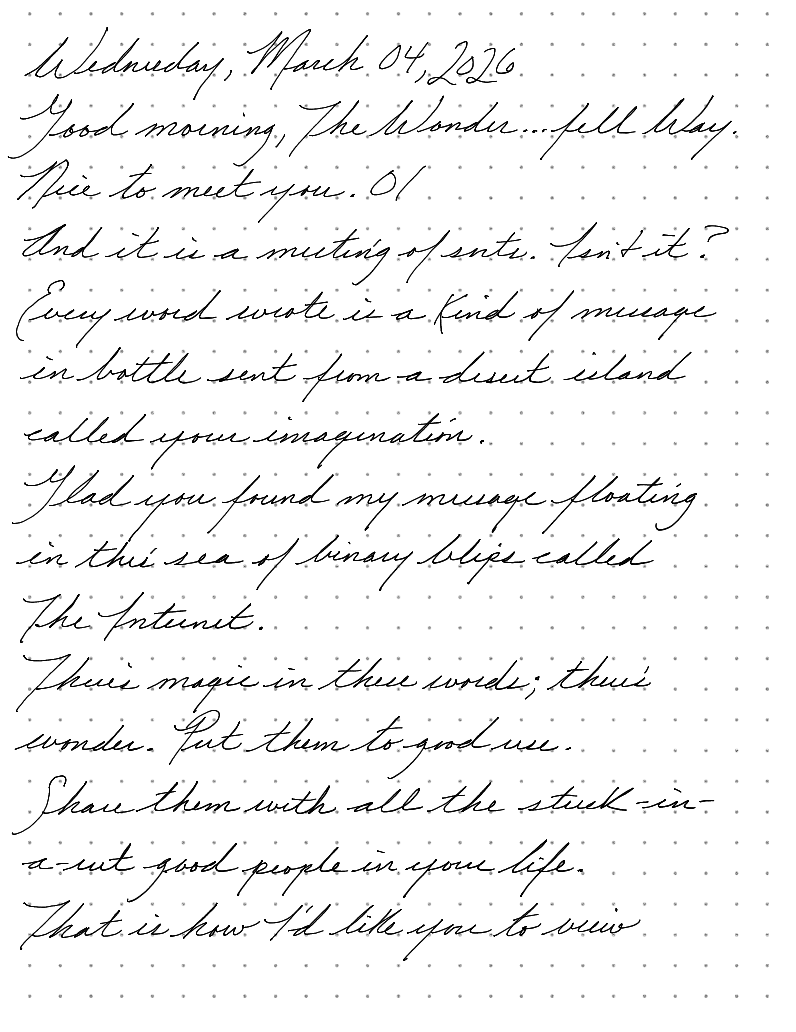 Wednesday, March 04, 2026
Good morning, The Wonder...full Way.
Nice to meet you. 01
And it is a meeting of sorts. Isn't it?
Every word wrote is a kind of message
in bottle sent from a desert island
called your imagination.
Glad you found my message floating
in this sea of binary blips called
The Internet.
There's magic in these words; there's
wonder. Put them to good use.
Share them with all the stuck-in-
a-rut good people in your life.
That is how I'd like you to view